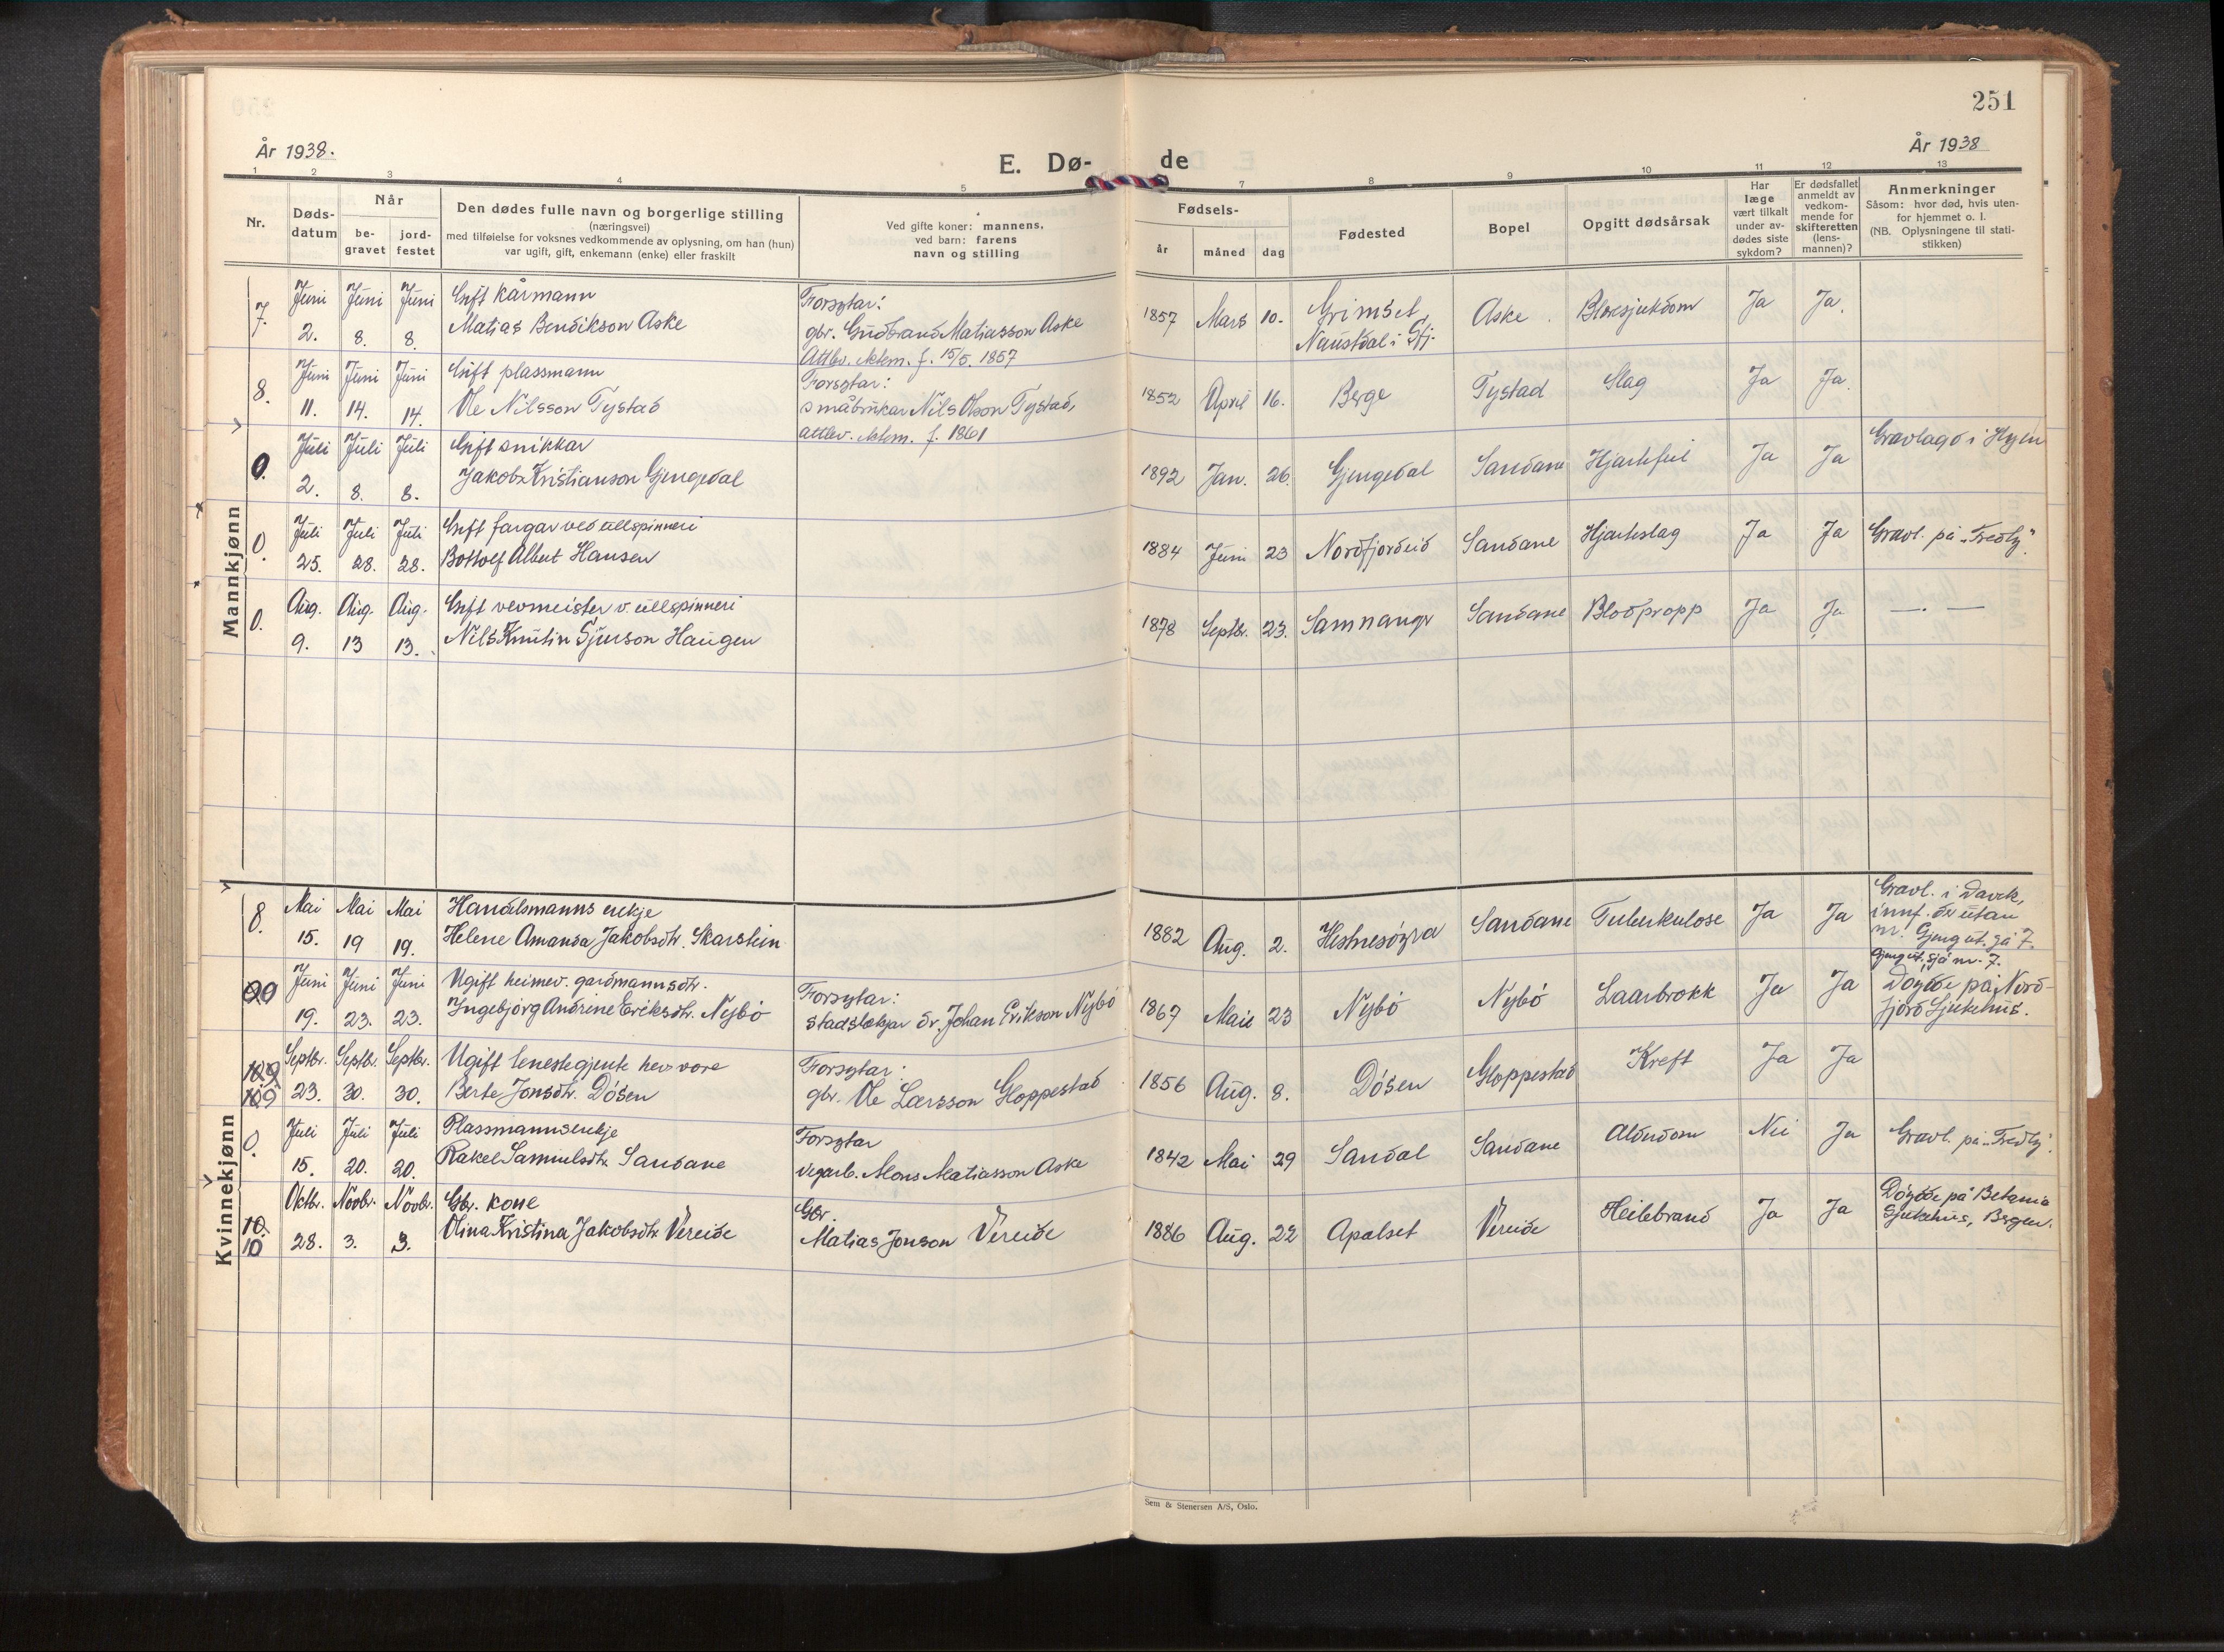 251
År 1938.
År 1938
E. Dø- de
1 2 3 4 5 7 8 9 10 11 12 13
Nr.
Døds-
datum
Når
be-
gravet
jord-
festet
Den dødes fulle navn og borgerlige stilling
(næringsvei)
med tilføielse for voksnes vedkommende av oplysning, om han (hun)
var ugift, gift, enkemann (enke) eller fraskilt
Ved gifte koner: mannens,
ved barn: farens
navn og stilling
Fødsels-
år måned dag
Fødested
Bopel
Opgitt dødsårsak
Har
læge
vært tilkalt
under av-
dødes siste
sykdom?
Er dødsfallet
anmeldt av
vedkom-
mende for
skifteretten
(lens-
mannen)?
Anmerkninger
Såsom: hvor død, hvis uten-
for hjemmet o. l.
(NB. Oplysningene til stati-
stikken)
Mannkjønn
7. Juni 2. Juni 8. Juni 8.
Gift kårmann
Matias Bendikson Aske
Forsytar:
gbr. Gudbrand Matiasson Aske
Attlev. ektem. f. 15/5. 1857
1857 Mars 10.
Grimset,
Naustdal i Sfj.
Aske
Blæresjukdom
Ja Ja.
8. Juni 11. Juni 14. Juni 14.
Gift plassmann
Ole Nilsson Tystad
Forsytar:
småbrukar Nils Olson Tystad,
attlev. ektem. f. 1861
1852 April 16. Berge Tystad Slag Ja Ja.
0. Juli 2. Juli 8. Juli 8.
Gift snikkar
Jakob Kristianson Gjengedal
1892 Jan. 26. Gjengedal Sandane Hjartefeil Ja Ja
Gravlagd i Hyen
0. Juli 25. Juli 28. Juli 28.
Gift fargar ved ullspinneri
Bottolf Albert Hansen
1884 Juni 23 Nordfjordeid Sandane Hjarteslag Ja Ja
Gravl. på "Fredly".
0. Aug. 9. Aug. 13 Aug. 13.
Gift vevmeister v. ullspinneri
Nils Knutin Sjurson Haugen
1878 Septbr. 23. Samnanger Sandane Blodpropp Ja Ja — . —
Kvinnekjønn
8. Mai 15. Mai 19 Mai 19.
Handelsmanns enkje
Helene Amanda Jakobsdtr. Skarstein
1882 Aug. 2. Hestnesøyra Sandane Tuberkulose Ja Ja
Gravl. i Davik,
innf. er utan
nr. Gjeng ut. sjå 7.
Gjeng ut. sjå nr. 7.
9 Juni 19. Juni 23. Juni 23.
Ugift heimev. gardmannsdtr.
Ingebjørg Andrine Eriksdtr. Nybø
Forsytar:
stadslækjar dr. Johan Erikson Nybø
1867 Mai 23 Nybø Nybø Laarbrokk Ja Ja
Døydde på Nord-
fjord Sjukehus.
109 Septbr. 23. Septbr. 30. Septbr. 30.
Ugift tenestegjente her vore
Berte Jonsdtr. Døsen
Forsytar:
gbr. Ole Larsson Gloppestad
1856 Aug. 8. Døsen Gloppestad Kreft Ja Ja
0. Juli 15. Juli 20. Juli 20.
Plassmannsenkje
Rakel Samuelsdtr. Sandane
Forsytar
vegarb. Mons Matiasson Aske
1842 Mai 29 Sandal Sandane Alderdom Nei Ja
Gravl. på "Fredly".
10. 10 Oktbr. 28. Novbr. 3. Novbr. 3.
Gbr. kone
Olina Kristina Jakobsdtr. Vereide
Gbr.
Matias Jonson Vereide
1886 Aug. 22 Apalset Vereide Heilebrand Ja Ja
Døydde på Betania
Sjukehus, Bergen.
Sem & Stenersen A/S, Oslo.